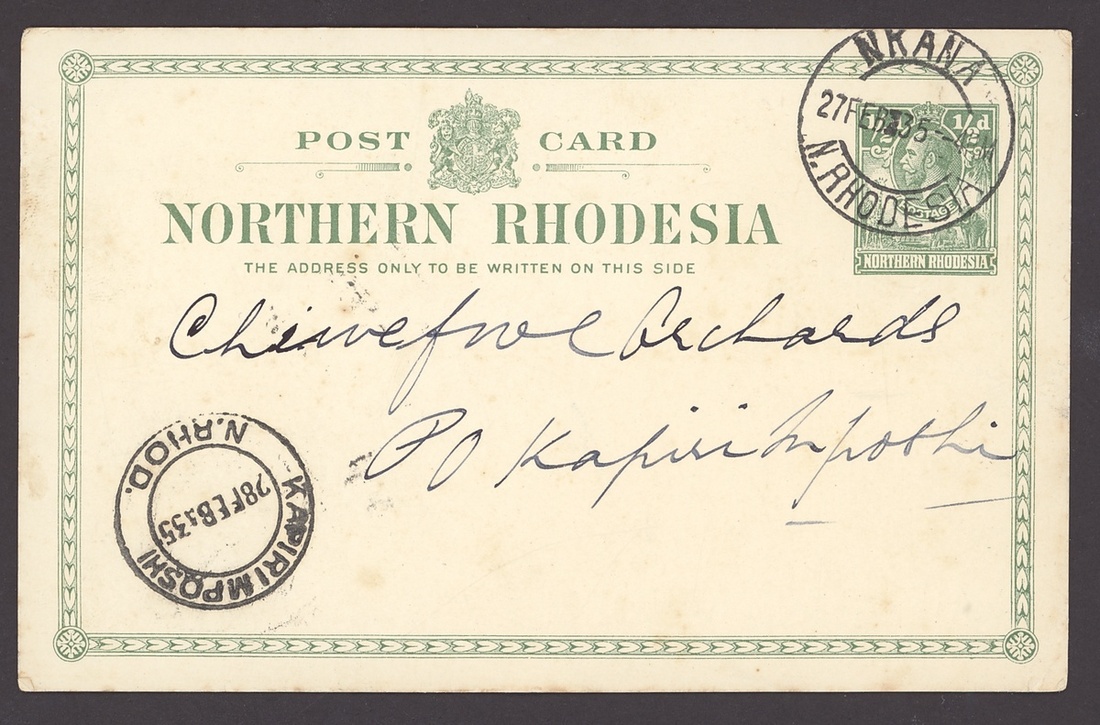 NKANA
27 FEB 35
N. RHODESIA
½d
POSTAGE
NORTHERN RHODESIA
POST CARD
NORTHERN RHODESIA
THE ADDRESS ONLY TO BE WRITTEN ON THIS SIDE
Chiwefwe Orchards
PO Kapiri Mposhi
KAPIRI MPOSHI
N.RHOD.
28 FEB 35